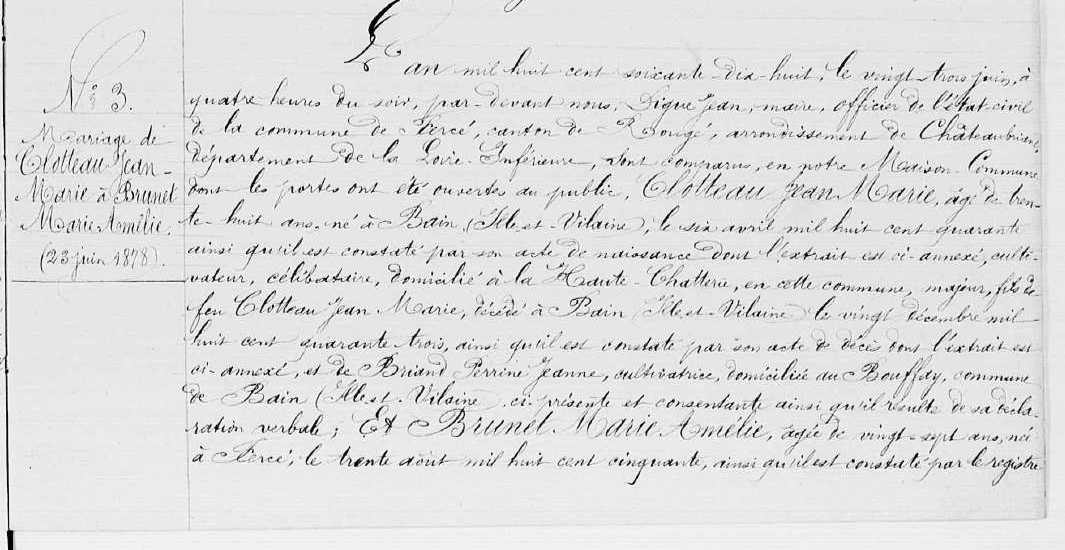 N° 3.
Mariage de
Clotteau Jean-
Marie à Brunet
Marie Amélie.
(23 juin 1878).
L'an mil huit cent soixante-dix-huit, le vingt-trois juin, à
quatre heures du soir, par-devant nous, Digue Jean, maire, officier de l'état-civil
de la commune de Fercé, canton de Rougé, arrondissement de Châteaubriant,
département de la Loire-Inférieure, sont comparus, en notre Maison Commune
dont les portes ont été ouvertes au public, Clotteau Jean Marie, âgé de tren-
te-huit ans, né à Bain (Ille-et-Vilaine), le six avril mil huit cent quarante
ainsi qu'il est constaté par son acte de naissance dont l'extrait est ci-annexé, culti-
vateur, célibataire, domicilié à la Haute-Chatterie, en cette commune, majeur, fils de
feu Clotteau Jean Marie, décédé à Bain (Ille-et-Vilaine) le vingt décembre mil
huit cent quarante-trois, ainsi qu'il est constaté par son acte de décès dont l'extrait est
ci-annexé, et de Briand Perrine Jeanne, cultivatrice, domiciliée au Bouffay, commune
de Bain (Ille-et-Vilaine, ci-présente et consentante ainsi qu'il résulte de sa décla-
ration verbale; Et Brunet Marie Amélie, âgée de vingt-sept ans, née
à Fercé, le trente août mil huit cent cinquante, ainsi qu'il est constaté par le registre